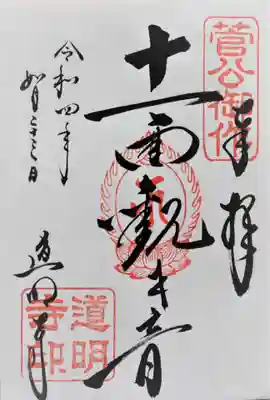 菅公御作
奉拝
十一面観世音
令和四年
如月二十三日
道明寺
道明
寺印